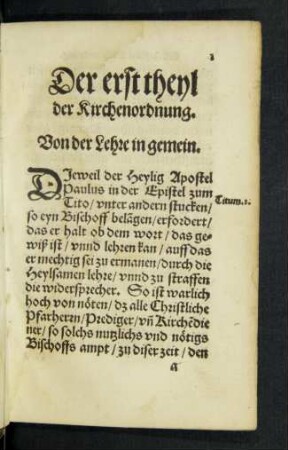 1
Der erst theyl
der Kirchenordnung.
Von der Lehre in gemein.
DJeweil der Heylig Apostel
Paulus in der Epistel zum
Tito / vnter andern stucken /
Titum.1.
so eyn Bischoff belägen / erfordert /
das er halt ob dem wort / das ge-
wiß ist / vnnd lehren kan / auff das
er mechtig sei zu ermanen / durch die
Heylsamen lehre / vnnd zu straffen
die widersprecher. So ist warlich
hoch von nöten / dz alle Christliche
Pfarherrn / Prediger / vñ Kirchẽdie
ner / so solchs nutzlichs vnd nötigs
Bischoffs ampt / zu diser zeit / den
a